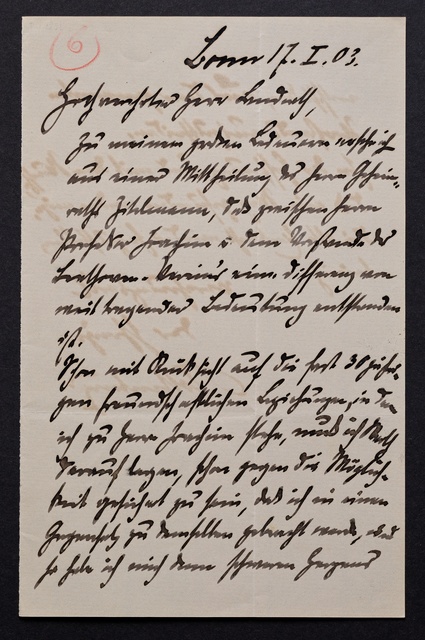 6
Bonn 17. I. 03.
Hochverehrter Herr Landrath,
Zu meinem großen Bedauern ersehe ich
aus einer Mittheilung des Herrn Geheim-
raths Zitelmann, daß zwischen Herrn
Professor Joachim u. dem Vorstande des
Beethoven-Vereins eine Differenz von
weit tragender Bedeutung entstanden
ist.
Schon mit Rücksicht auf die fast 30 jähri-
gen freundschaftlichen Beziehungen, in denen
ich zu Herrn Joachim stehe, muß ich Werth
darauf legen, schon gegen die Möglich-
keit gesichert zu sein, daß ich in einen
Gegensatz zu demselben gebracht werde,
so habe ich mich denn schweren Herzens